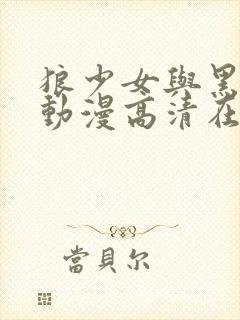 狼少女與黑
動漫高清在
當貝尔